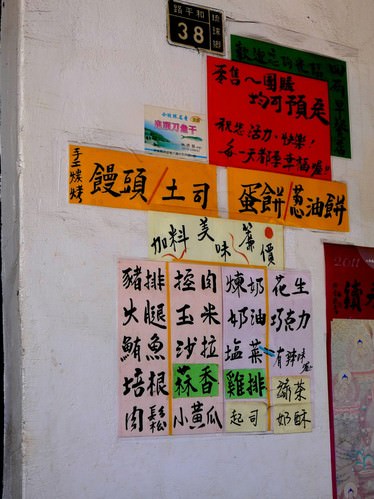 琉球鄉
和平路
38
零售~團購
均可預桌
祝您活力,快樂,
每一天都幸福喔!!
手工炭烤
饅頭/土司
蛋餅/蔥油餅
加料美味簾價
豬排
火腿
鮪魚
培根
肉鬆
玉米
沙拉
蔴香
小黃瓜
煉奶
奶油
塩菜
雞排
起司
花生
巧克力
有辣味喔
蔬菜
奶酥
2011